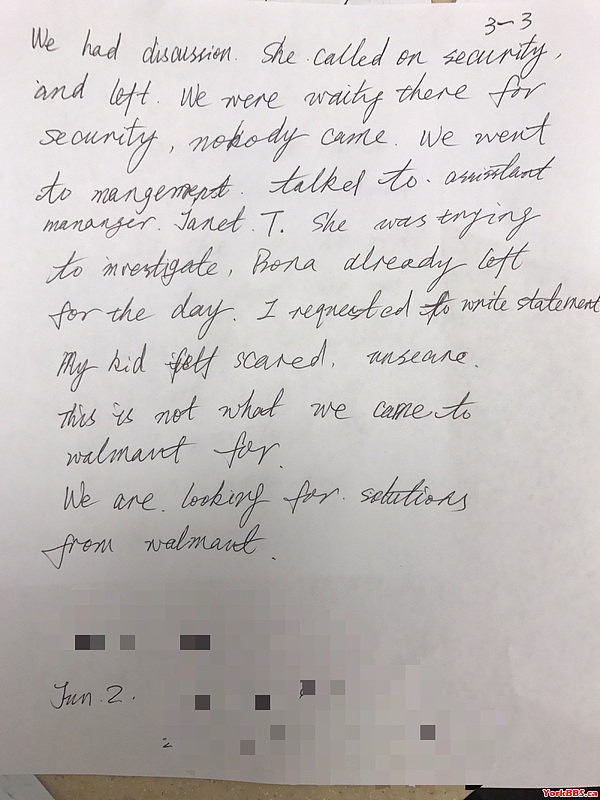 3-3
We had discussion. She called on security,
and left. We were waity there for
security, nobody came. We went
to mangement. talked to. assistant
mananger. Janet. T. She was trying
to investigate, Bona already left
for the day. I requested to write statement
My kid felt scared, unsecure.
This is not what we came to
walmart for.
We are looking for solutions
from walmart.
Jun. 2.
YorkBBS.ca